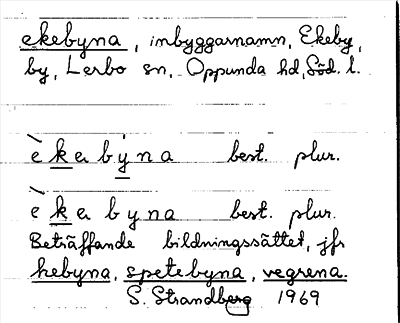 ekebyna, inbyggarnamn, Ekeby,
by, Lerbo sn, Oppunda hd, Söd. l.
è k e b ẏ n a best. plur.
è k e b y n a best. plur.
Beträffande bildningssättet, jfr
hebyna, spetebyna, vegrena.
S. Strandberg 1969